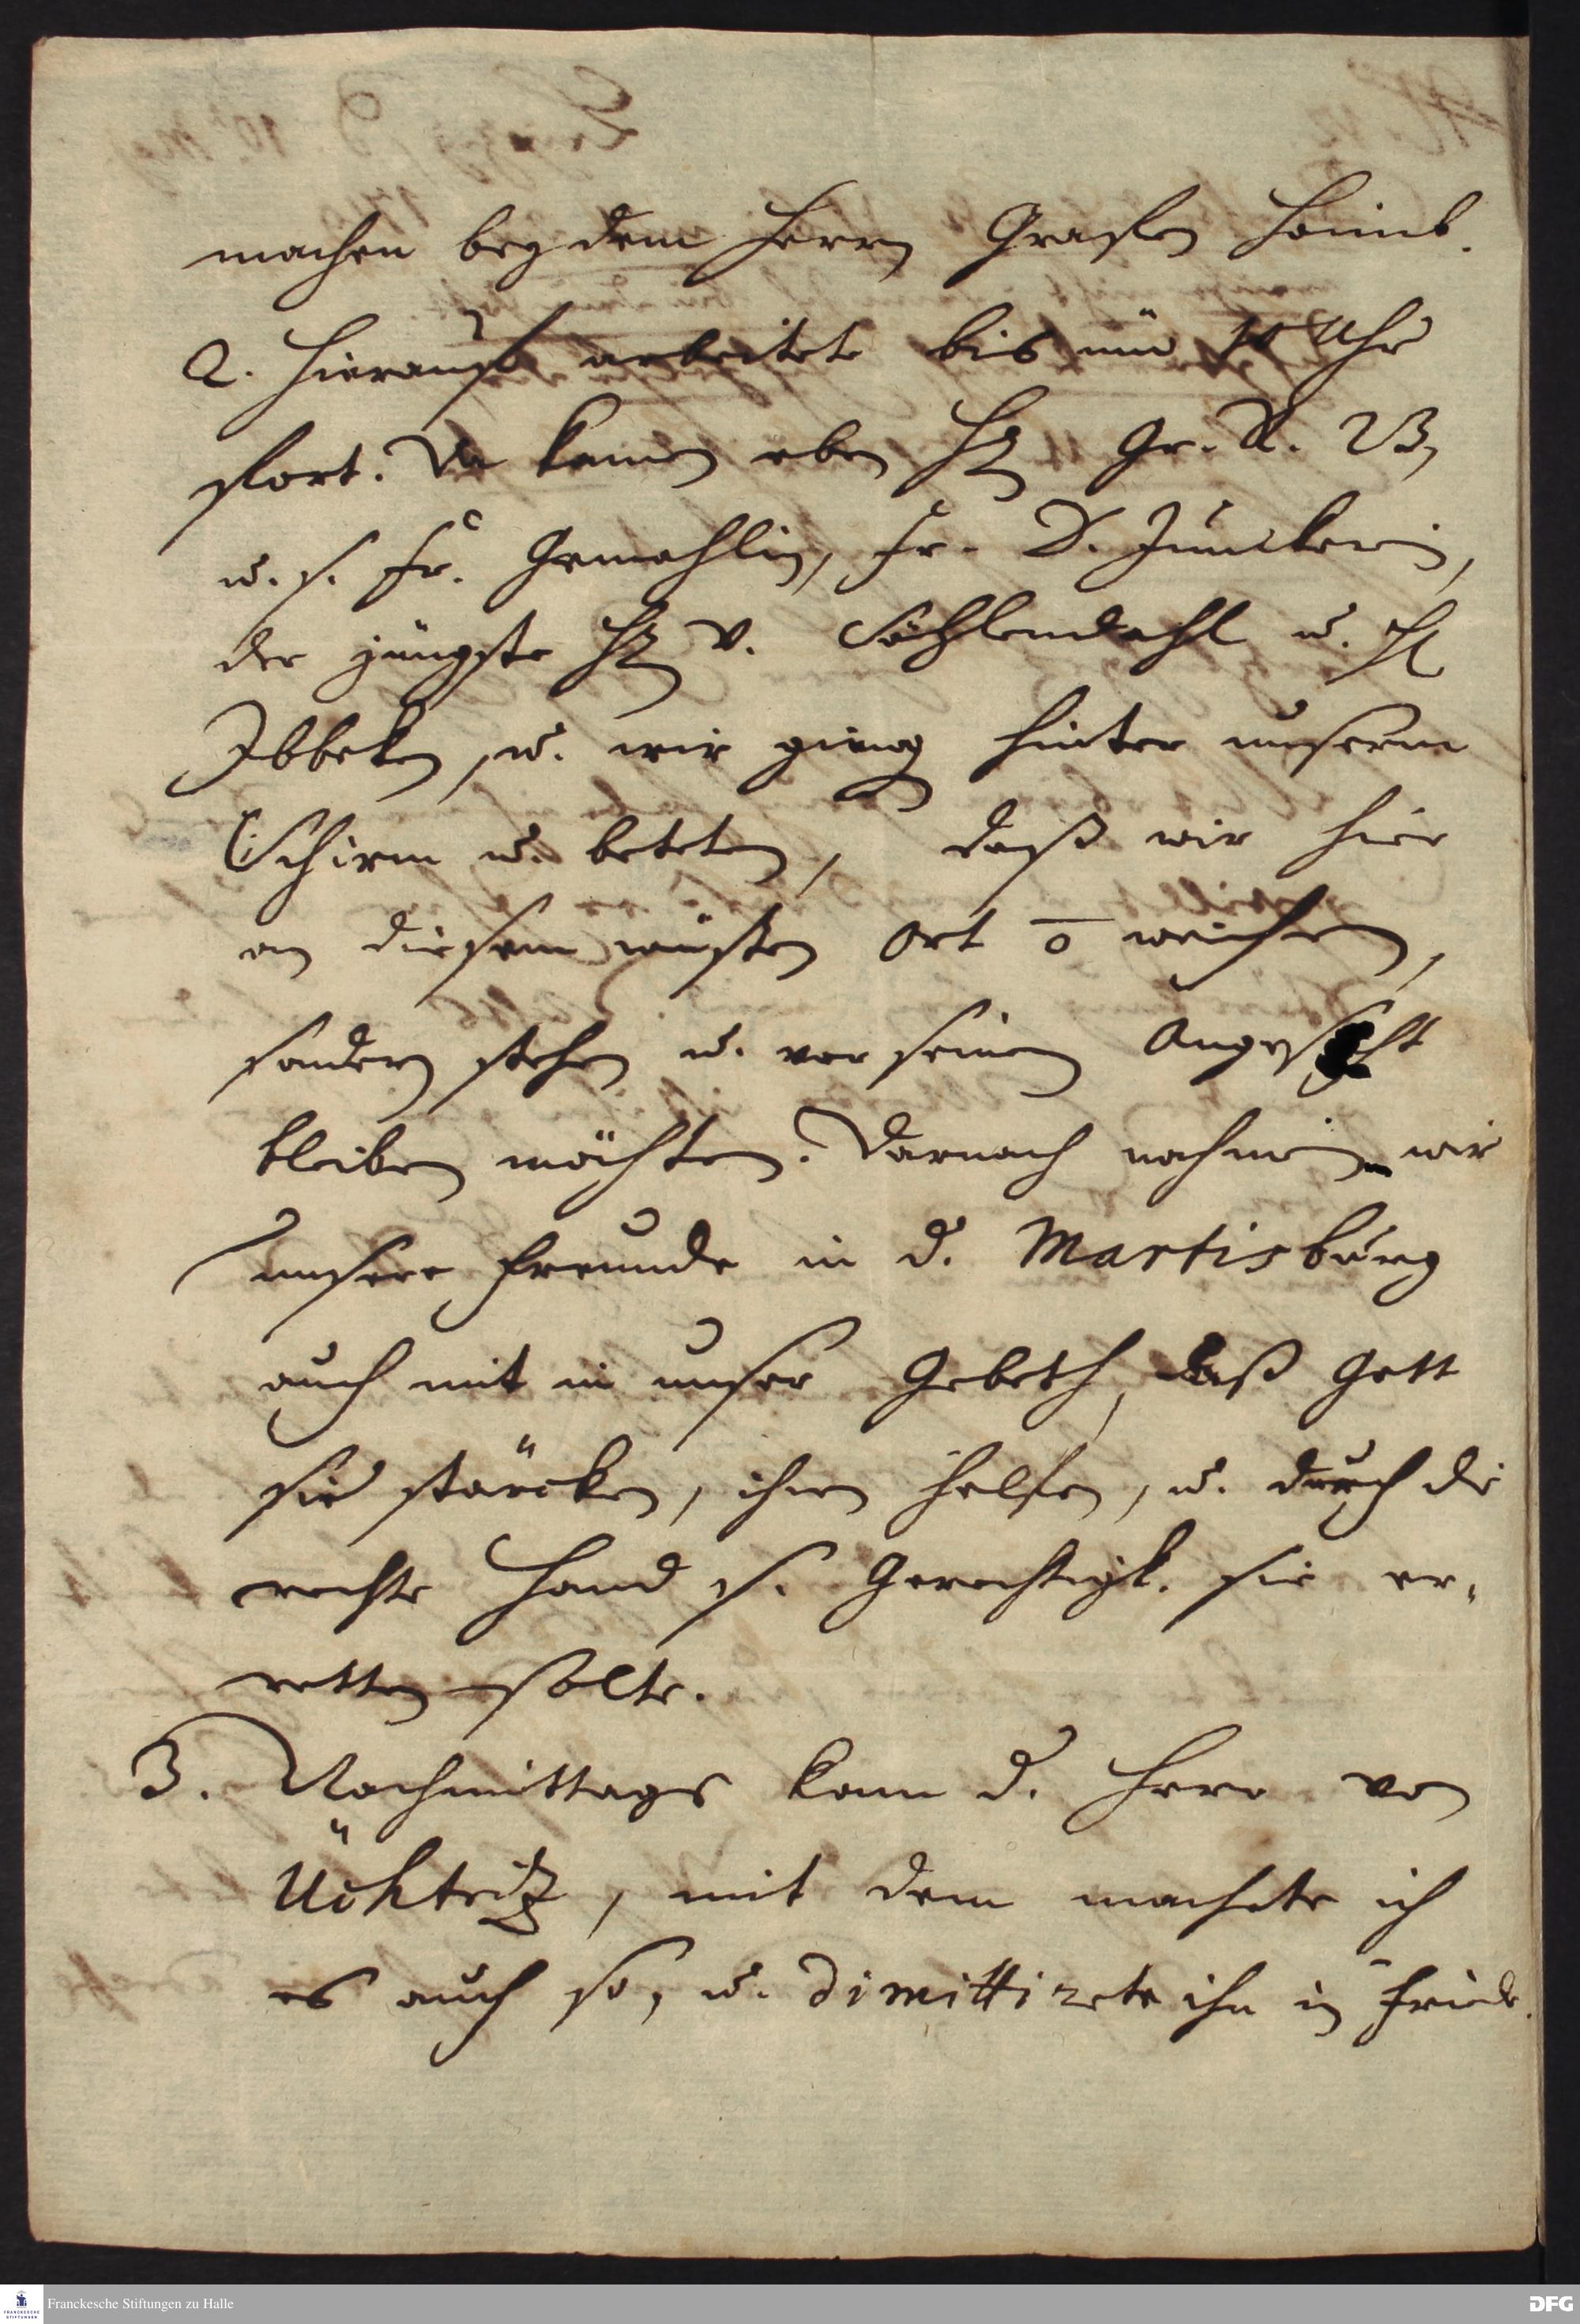 machen bey dem Herrn Grafen Hoimb.
2. Hierauf arbeitete bis um 10 Uhr
fort. Da kamen eben H. Gr. R. 23,
u. s. Fr. Gemahlin, Fr. D. Junckerin,
der jüngste H. v. Söhlendahl u. H.
Ibbeken, u. wir gieng hinter unserm
Schirm u. beteten, daß wir hier
an diesem wüsten Ort o weichen,
sondern stehen u. vor seinem Angesicht
bleiben möchten. Darnach nahmen wir
unsere Freunde in d. Martisburg
auch mit in unser Gebeth, daß Gott
sie stärcken, ihnen helfen, u. durch die
rechte Hand s. Gerechtigk. sie er-
retten solte.
3. Nachmittags kam d. Herr von
Üchtritz, mit dem machte ich
es auch so, u. dimittirete ihn in Friede.
Franckesche Stiftungen zu Halle
DFG